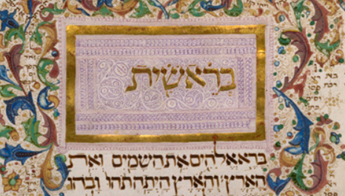 בראשית
ברא אלהים את השמים ואת
הארץ והארץ היתה תהו ובהו